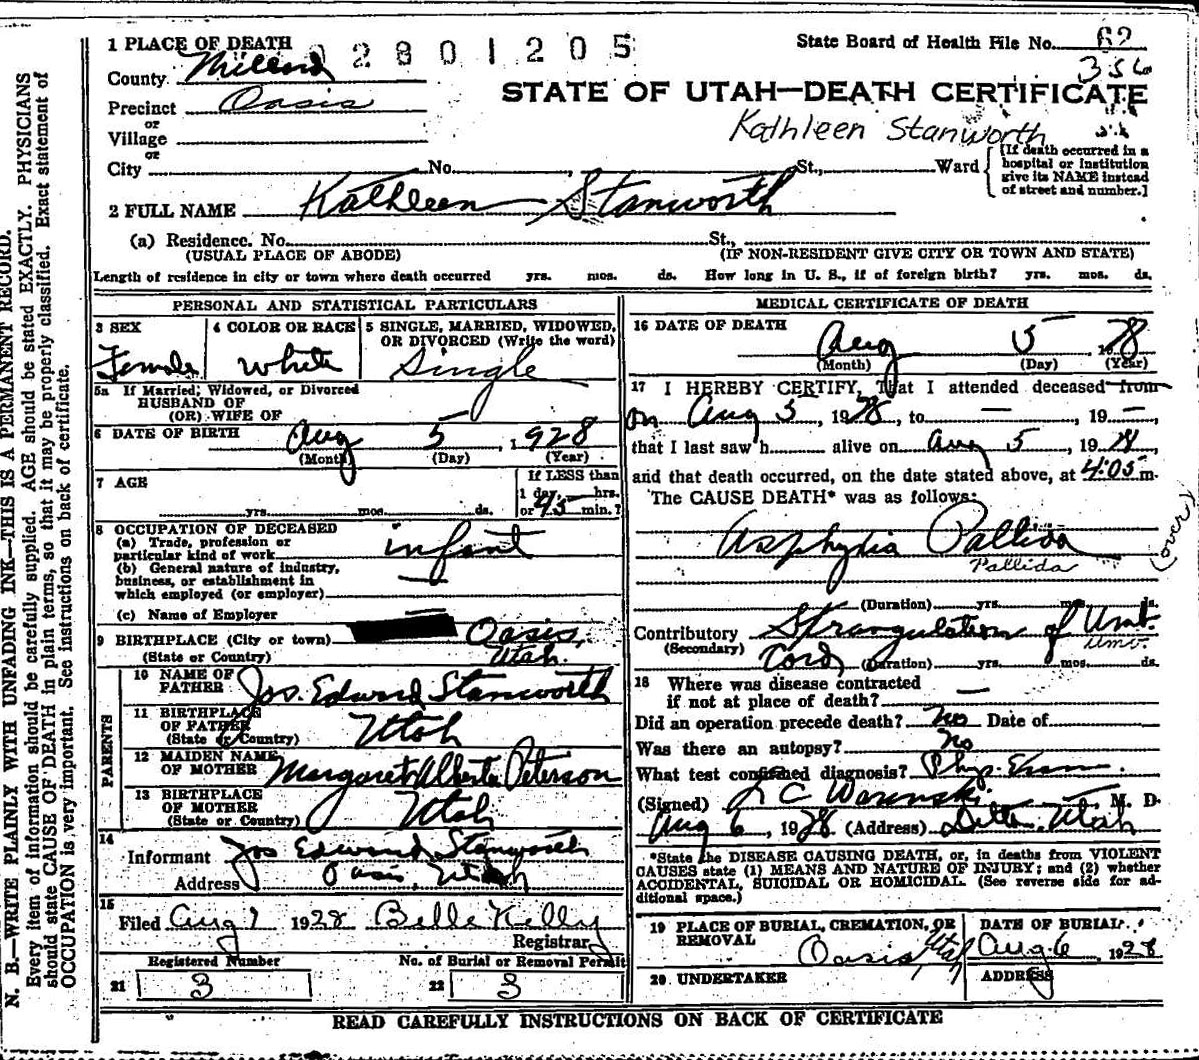 N. B.—WRITE PLAINLY WITH UNFADING INK—THIS IS A PERMANENT RECORD.
Every item of information should be carefully supplied. AGE should be stated EXACTLY. PHYSICIANS
should state CAUSE OF DEATH in plain terms, so that it may be properly classified. Exact statement of
OCCUPATION is very important. See instructions on back of certificate.
1 PLACE OF DEATH
02801205
State Board of Health File No. 62
356
County Millard
Precinct Oasis
or
Village
or
City No. , St., Ward
STATE OF UTAH—DEATH CERTIFICATE
Kathleen Stanworth
[If death occurred in a
hospital or institution
give its NAME instead
of street and number.]
2 FULL NAME Kathleen Stanworth
(a) Residence. No. St.,
(USUAL PLACE OF ABODE) (IF NON-RESIDENT GIVE CITY OR TOWN AND STATE)
Length of residence in city or town where death occurred yrs. mos. ds. How long in U. S., if of foreign birth? yrs. mos. ds.
PERSONAL AND STATISTICAL PARTICULARS
3 SEX
Female
4 COLOR OR RACE
White
5 SINGLE, MARRIED, WIDOWED,
OR DIVORCED (Write the word)
Single
5a If Married, Widowed, or Divorced
HUSBAND OF
(OR) WIFE OF
6 DATE OF BIRTH Aug 5, 1928
(Month) (Day) (Year)
7 AGE
yrs. mos. ds.
If LESS than
1 day, hrs.
or 45 min.?
8 OCCUPATION OF DECEASED
(a) Trade, profession or
particular kind of work infant
(b) General nature of industry,
business, or establishment in
which employed (or employer)
(c) Name of Employer
9 BIRTHPLACE (City or town) Oasis,
(State or Country) Utah.
PARENTS
10 NAME OF
FATHER Jos. Edward Stanworth
11 BIRTHPLACE
OF FATHER
(State or Country) Utah
12 MAIDEN NAME
OF MOTHER Margaret Alberta Peterson
13 BIRTHPLACE
OF MOTHER
(State or Country) Utah
14
Informant Jos Edward Stanworth
Address Oasis, Utah
15
Filed Aug 7 1928 Belle Kelly
Registrar
Registered Number
21 3
No. of Burial or Removal Permit
22 3
MEDICAL CERTIFICATE OF DEATH
16 DATE OF DEATH
Aug 5, 1928
(Month) (Day) (Year)
17 I HEREBY CERTIFY, That I attended deceased from
on Aug 5, 1928, to — , 19 —
that I last saw h alive on Aug 5, 1928
and that death occurred, on the date stated above, at 4:05 m.
The CAUSE DEATH* was as follows:
Asphyxia Pallida
Pallida
(over)
(Duration) yrs. mos. ds.
Contributory Strangulation of Umb.
(Secondary)
Umb.
Cord, (Duration) yrs. mos. ds.
18 Where was disease contracted
if not at place of death? —
Did an operation precede death? No Date of
Was there an autopsy? No
What test confirmed diagnosis? Phys. Exam.
(Signed) , M. D.
Aug 6, 1928 (Address) Delta, Utah
*State the DISEASE CAUSING DEATH, or, in deaths from VIOLENT
CAUSES state (1) MEANS AND NATURE OF INJURY; and (2) whether
ACCIDENTAL, SUICIDAL OR HOMICIDAL. (See reverse side for ad-
ditional space.)
19 PLACE OF BURIAL, CREMATION, OR
REMOVAL Oasis, Utah
DATE OF BURIAL
Aug. 6, 1928
20 UNDERTAKER
ADDRESS
READ CAREFULLY INSTRUCTIONS ON BACK OF CERTIFICATE